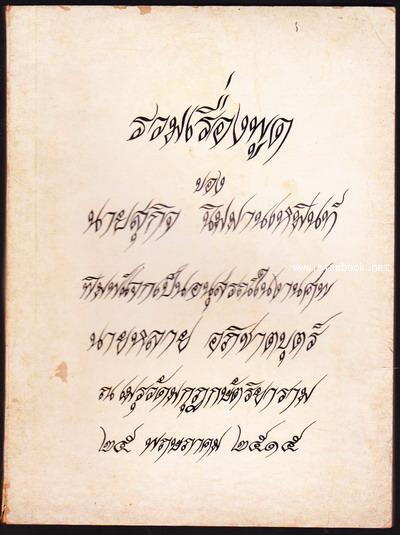 รวมเรื่องพูด
ของ
นายสุกิจ นิมมานเหมินท์
www.siambook.net
พิมพ์แจกเป็นอนุสรณ์ในงานศพ
นายหลาย อภิชาตบุตร์
ณ เมรุวัดมกุฏกษัตริยาราม
๒๕ พฤษภาคม ๒๕๑๕